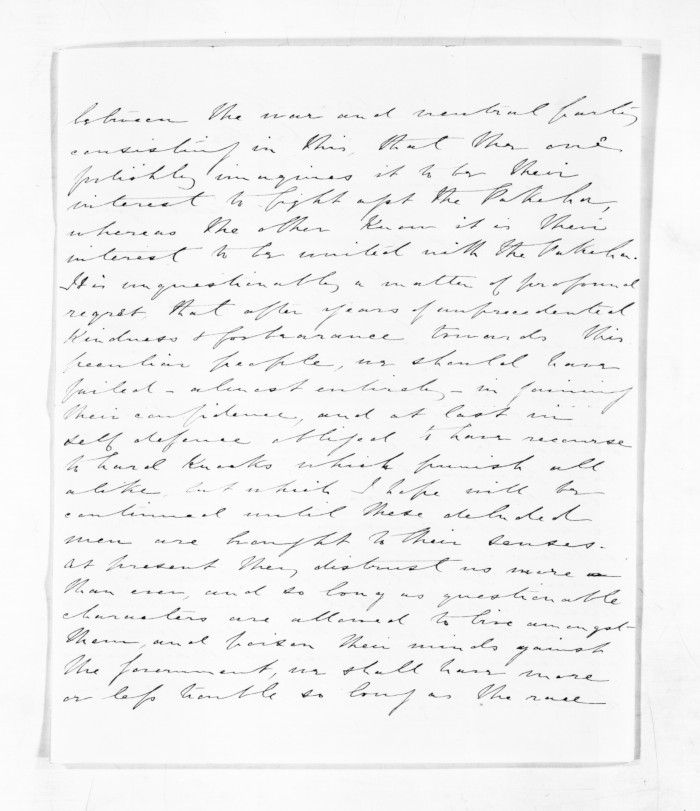 between the war and neutral party
consisting in this, that the one
foolishly imagines it to be their
interest to fight agst the Pakeha,
whereas the other Know it is their
interest to be united with the Pakeha.
It is unquestionably a matter of profound
regret, that after years of unprecedented
Kindness & forbearance towards this
peculiar people, we should have
failed - almost entirely - in gaining
their confidence, and at last in
self defence obliged to have recourse
to hard Knocks which punish all
alike, but which I hope will be
continued until these deluded
men are brought to their senses.
At present they distrust us more
than ever, and so long as questionable
characters are allowed to live amongst
them, and poison their minds against
the Government, we shall have more
or less trouble so long as the race